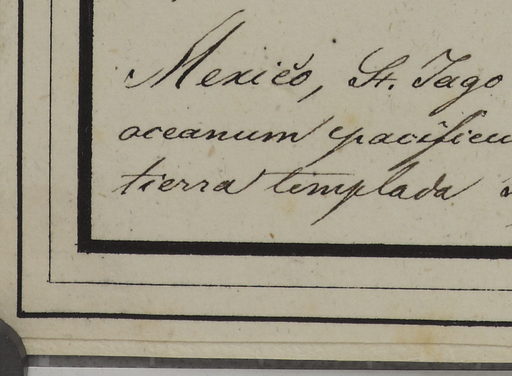 Mexico, St. Jago
oceanum pacificu
tierra templada